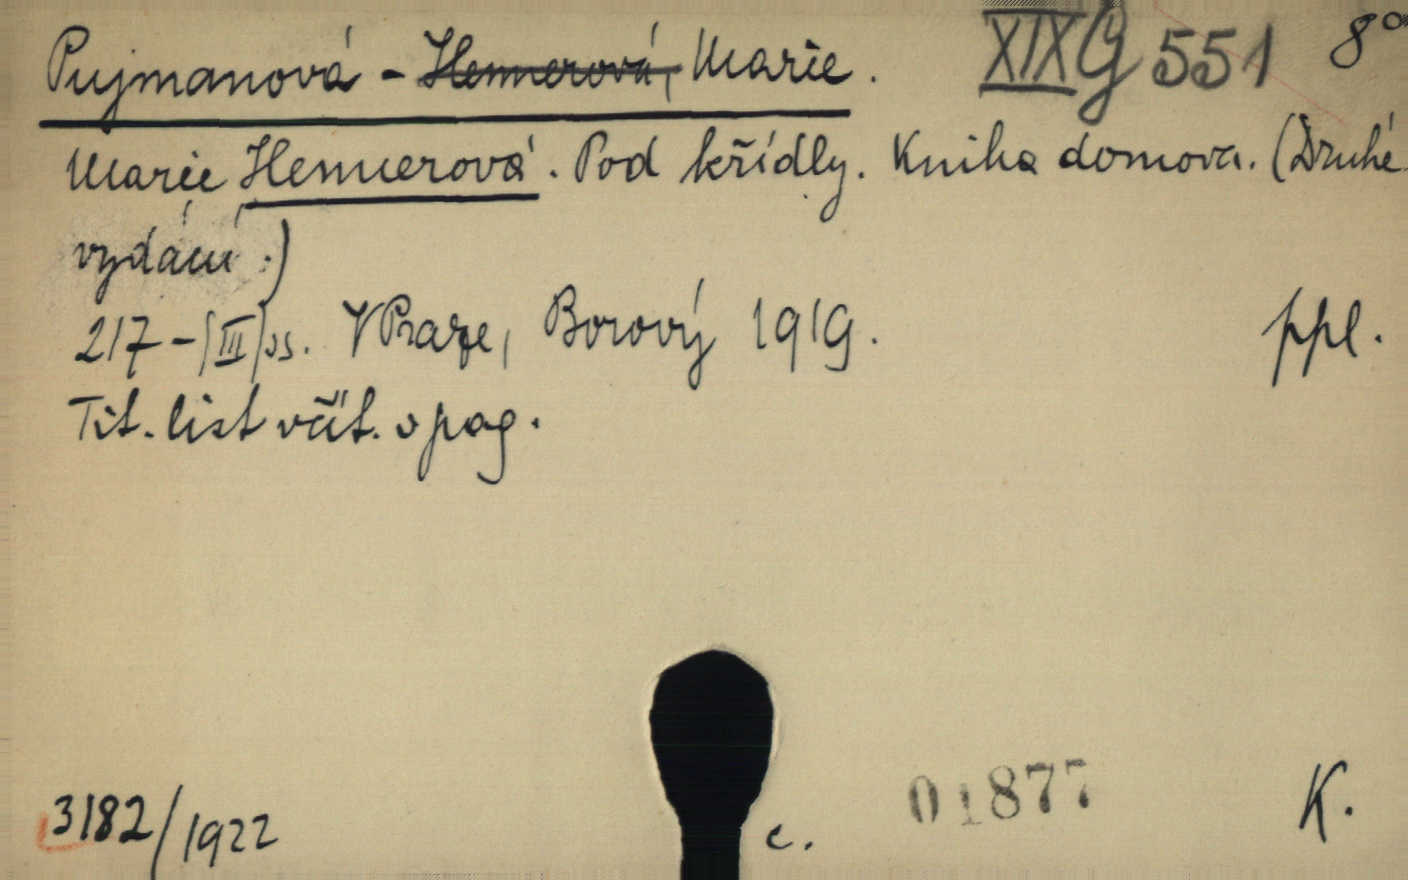 Pujmanová - Hennerová, Marie. XIX G 551 8°
Marie Hennerová. Pod křídly. Kniha domova. (Druhé
vydání.)
217-[III]ss. V Praze, Borový 1919. ppl.
Tit. list včít. v pag.
3182/1922 c. 01877 K.